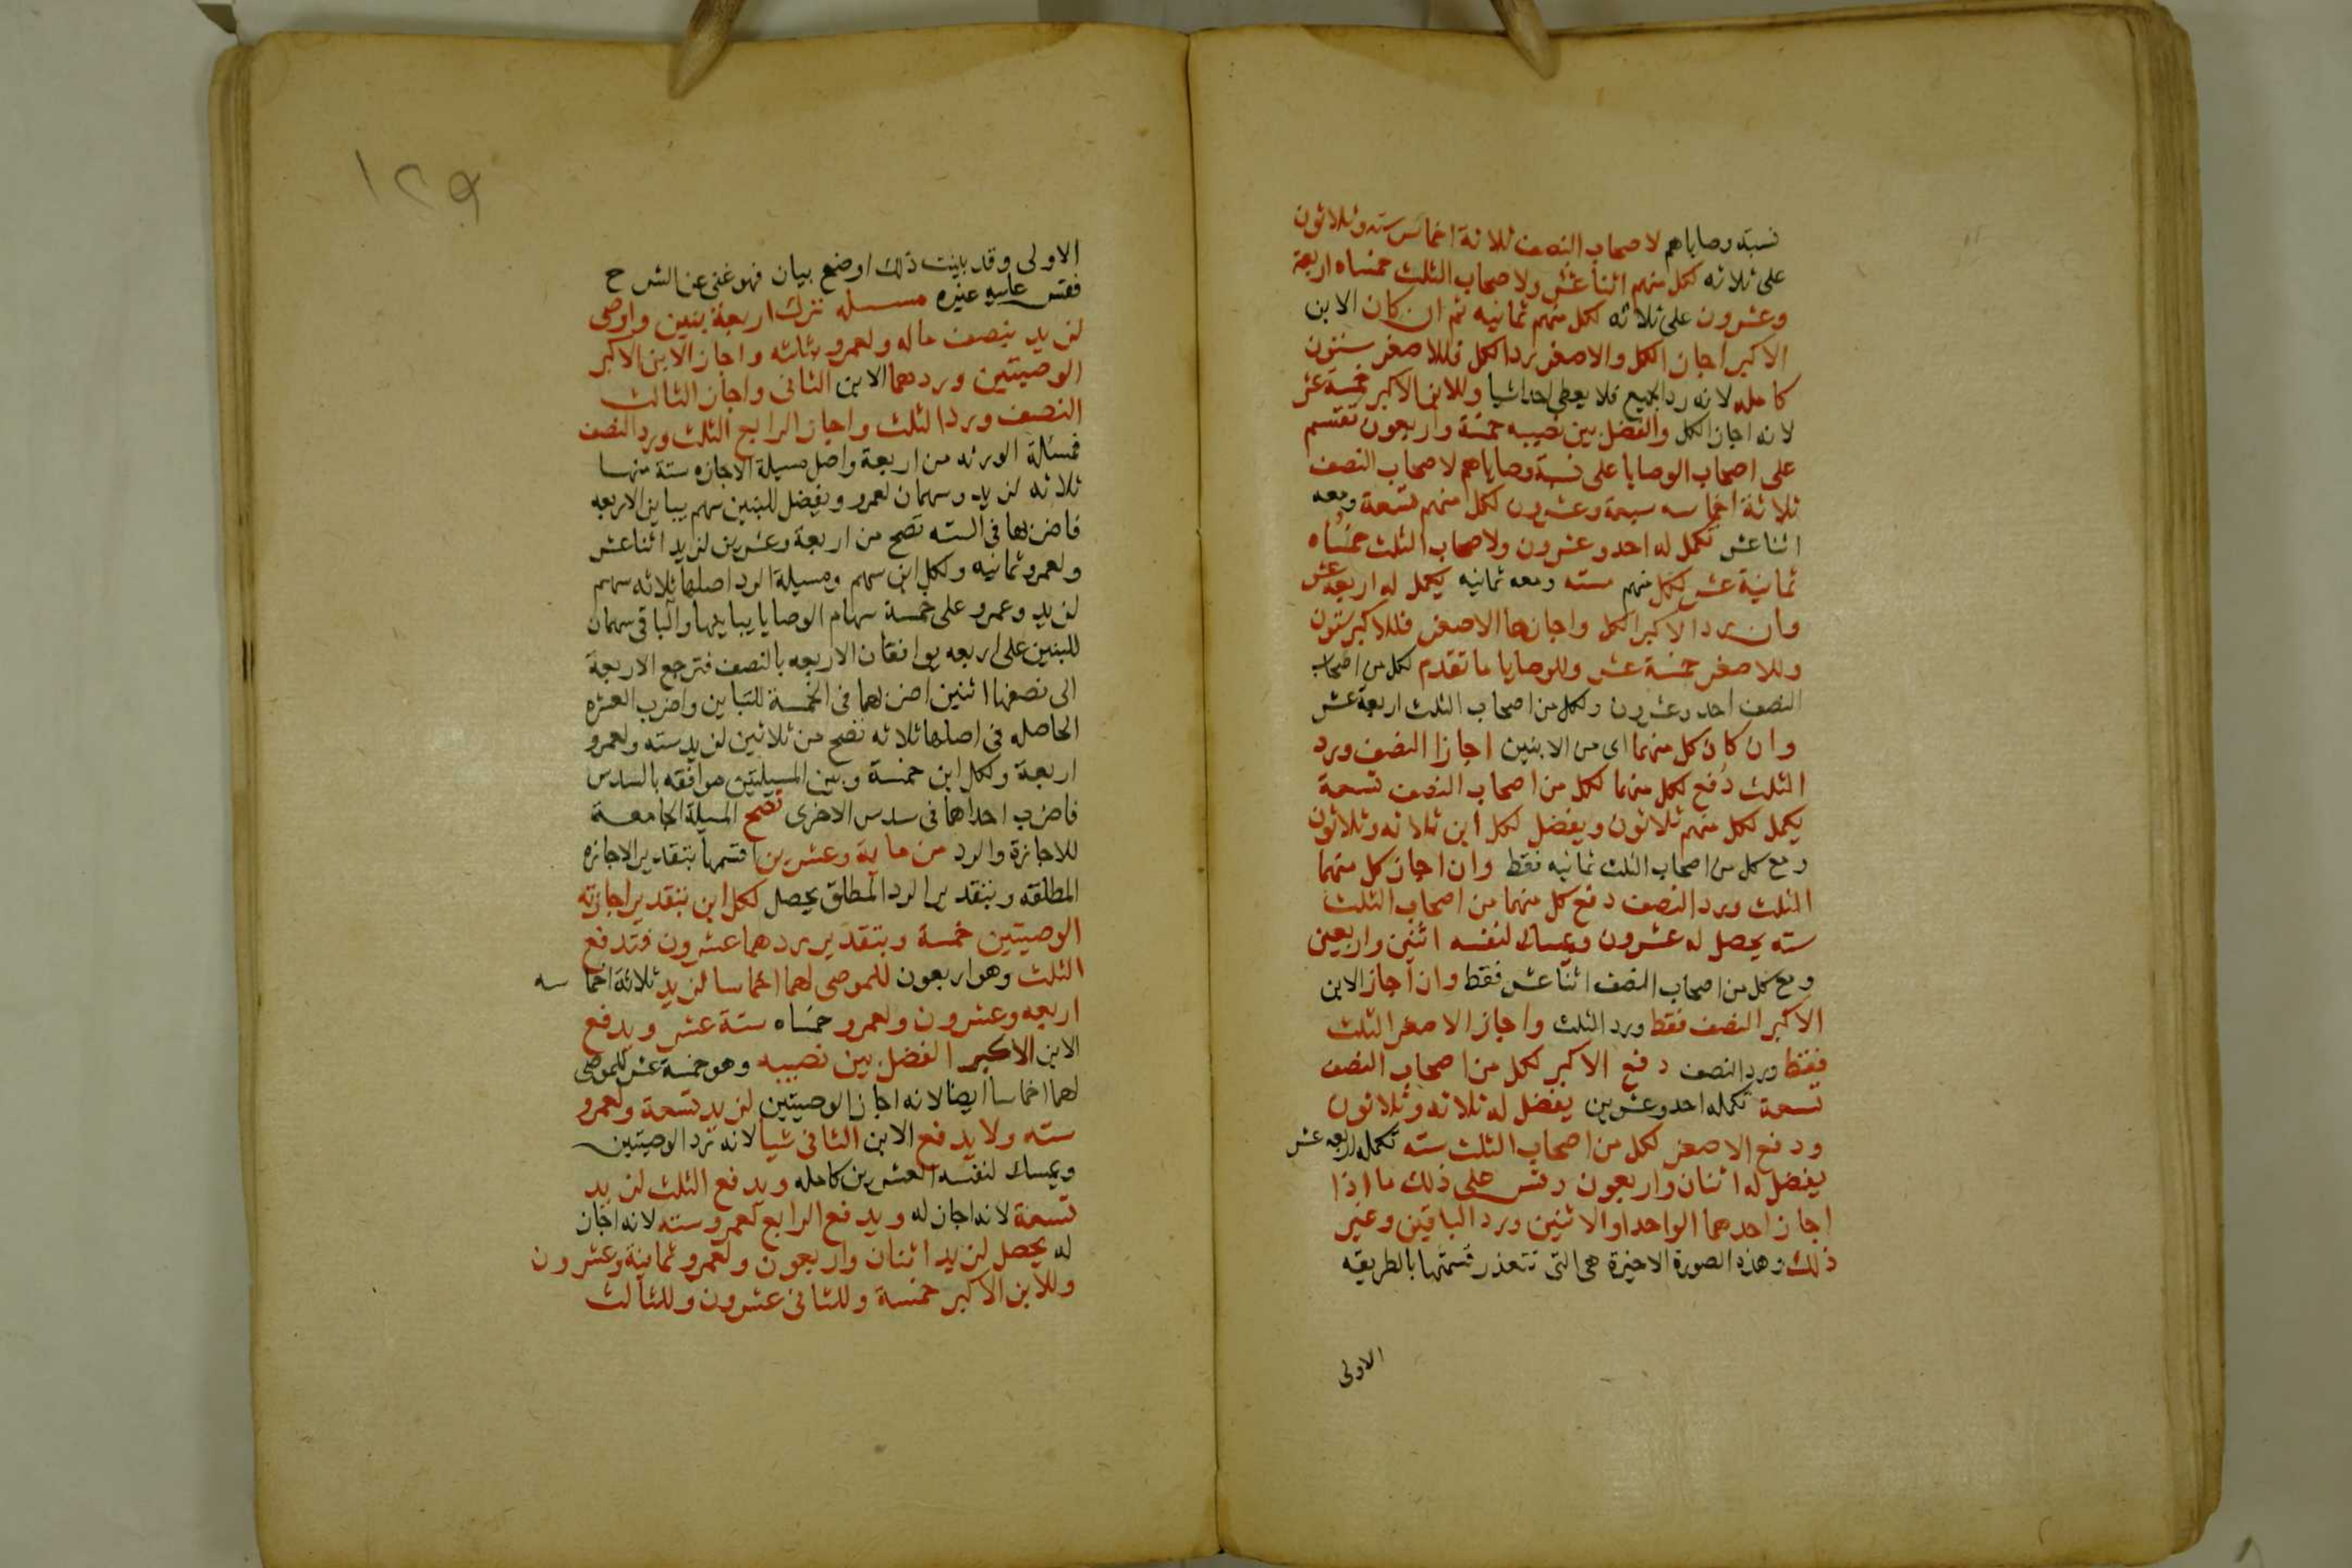 نسبة وصاياهم لاصحاب النصف ثلاثة اخماس ستة وثلاثون
على ثلاثه لكل منهم اثنا عشر ولاصحاب الثلث خمساه اربعة
وعشرون على ثلاثه لكل منهم ثمانيه ثم ان كان الابن
الاكبر اجاز الكل والاصغر رد الكل فللاصغر ستون
كامله لانه رد الجميع فلا يعطى احدا شيا وللابن الاكبر خمسة عشر
لانه اجاز الكل والفضل بين نصيبه خمسة واربعون تقسم
على اصحاب الوصايا على نسبة وصاياهم لاصحاب النصف
ثلاثة اخماسه سبعة وعشرون لكل منهم تسعة ومعه
اثنا عشر تكمل له احد وعشرون ولاصحاب الثلث خمساه
ثمانية عشر لكل منهم سته ومعه ثمانيه يكمل له اربعة عشر
وان رد الاكبر الكل واجازها الاصغر فللاكبر ستون
وللاصغر خمسة عشر وللوصايا ما تقدم لكل من اصحاب
النصف احد وعشرون ولكل من اصحاب الثلث اربعة عشر
وان كان كل منهما اى من الابنين اجازا النصف ورد
الثلث دفع لكل منهما لكل من اصحاب النصف تسعة
يكمل لكل منهم ثلاثون ويفضل لكل ابن ثلاثه وثلاثون
ومع كل من اصحاب الثلث ثمانيه فقط وان اجاز كل منهما
الثلث ورد النصف دفع كل منهما من اصحاب الثلث
سته يحصل له عشرون ويمسك لنفسه اثنين واربعين
ومع كل من اصحاب النصف اثنا عشر فقط وان اجاز الابن
الاكبر النصف فقط ورد الثلث واجاز الاصغر الثلث
فقط ورد النصف دفع الاكبر لكل من اصحاب النصف
تسعة تكمله احد وعشرين يفضل له ثلاثه وثلاثون
ودفع الاصغر لكل من اصحاب الثلث سته تكمله اربعه عشر
يفضل له اثنان واربعون وقس على ذلك ما اذا
اجاز احدهما الواحد او الاثنين ورد الباقين وغير
ذلك وهذه الصورة الاخيرة هى التى تتعذر قسمتها بالطريقه
الاولى
١٢٩
الاولى وقد بينت ذلك اوضح بيان فهو غنى عن الشرح
فقس عليه غيره مسله ترك اربعة بنين واوصى
لزيد بنصف ماله ولعمرو بثلثه واجاز الابن الاكبر
الوصيتين وردهما الابن الثانى واجاز الثالث
النصف ورد الثلث واجاز الرابع الثلث ورد النصف
فمسالة الورثه من اربعة واصل مسيلة الاجازه ستة منها
ثلاثه لزيد وسهمان لعمرو ويفضل للبنين سهم يباين الاربعه
فاضربها فى السته تصح من اربعة وعشرين لزيد اثنا عشر
ولعمرو ثمانيه ولكل ابن سهم ومسيلة الرد اصلها ثلاثه سهم
لزيد وعمرو على خمسة سهام الوصايا يباينها والباقى سهمان
للبنين على اربعه يوافقان الاربعه بالنصف فترجع الاربعة
الى نصفها اثنين اضربهما فى الخمسة للتباين واضرب العشره
الحاصله فى اصلها ثلاثه تصح من ثلاثين لزيد سته ولعمرو
اربعة ولكل ابن خمسة وبين المسيلتين موافقه بالسدس
فاضرب احداهما فى سدس الاخرى تصح المسيلة الجامعة
للاجازة والرد من ماية وعشرين اقسمها بتقدير الاجازه
المطلقه وبتقدير الرد المطلق يحصل لكل ابن بتقدير اجازته
الوصيتين خمسة وبتقدير ردهما عشرون فتدفع
الثلث وهو اربعون للموصى لهما اخماسا لزيد ثلاثة اخماسه
اربعه وعشرون ولعمرو خمساه ستة عشر ويدفع
الابن الاكبر الفضل بين نصيبه وهو خمسة عشر للموصى
لهما اخماسا ايضا لانه اجاز الوصيتين لزيد تسعة ولعمرو
سته ولا يدفع الابن الثانى شيا لانه رد الوصيتين
ويمسك لنفسه العشرين كامله ويدفع الثلث لزيد
تسعة لانه اجاز له ويدفع الرابع لعمرو سته لانه اجاز
له يحصل لزيد اثنان واربعون ولعمرو ثمانية وعشرون
وللابن الاكبر خمسة وللثانى عشرون وللثالث